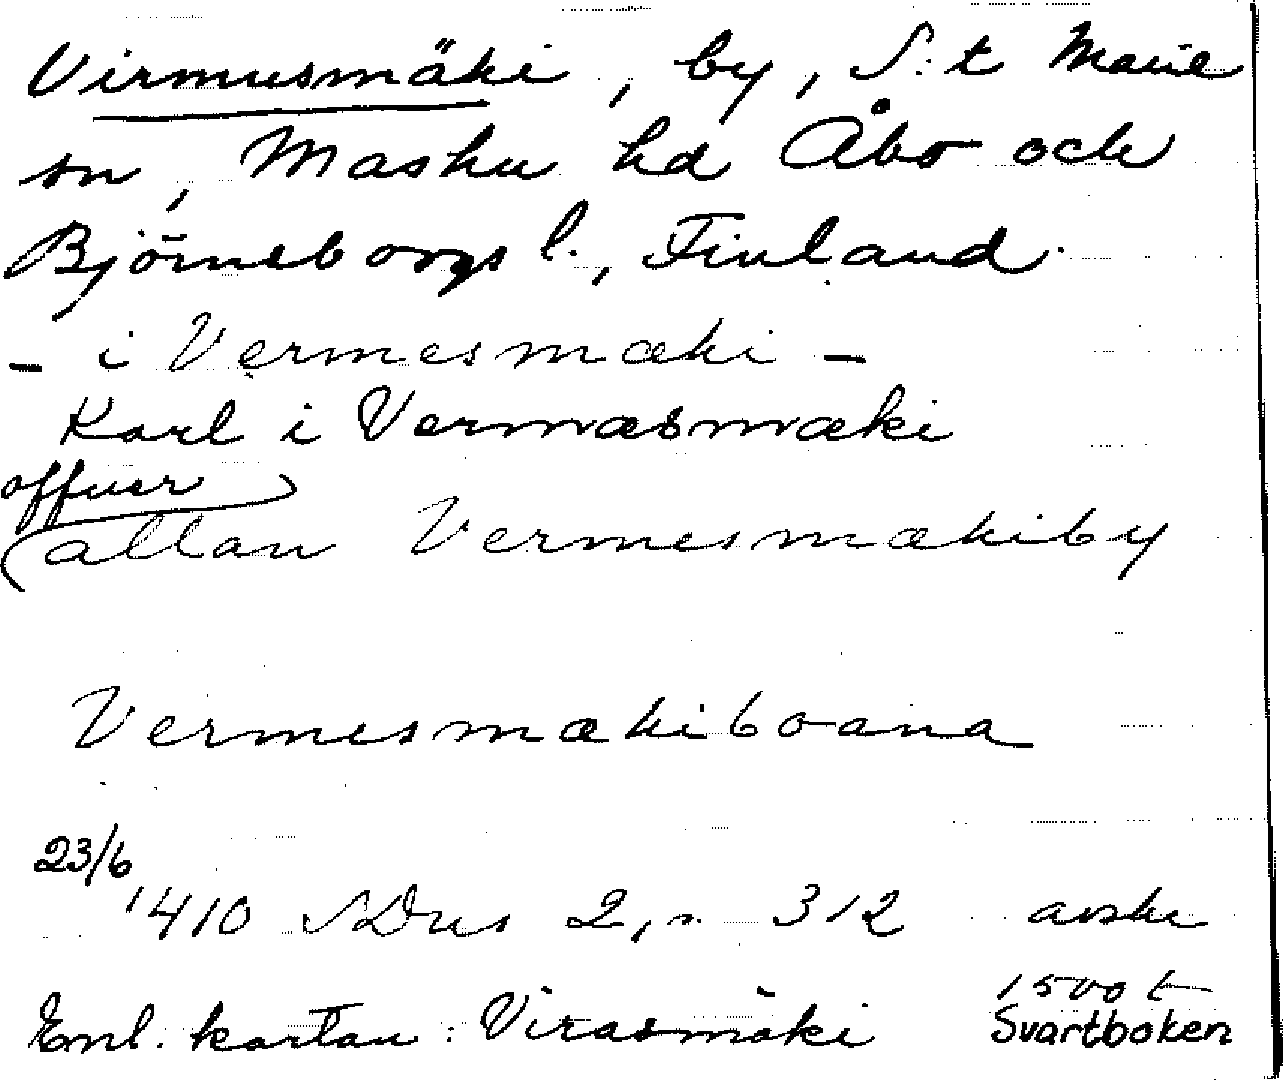 Virmusmäki, by, S:t Marie
sn, Masku hd Åbo och
Björneborgs l., Finland.
– i Vermesmæki –
Karl i Vermæsmæki
offuer
allan Vermesmækiby
Vermesmækiboana
23/6
1410 SDns 2, s. 312 avskr
1500 t
Enl. kartan: Virasmäki Svartboken